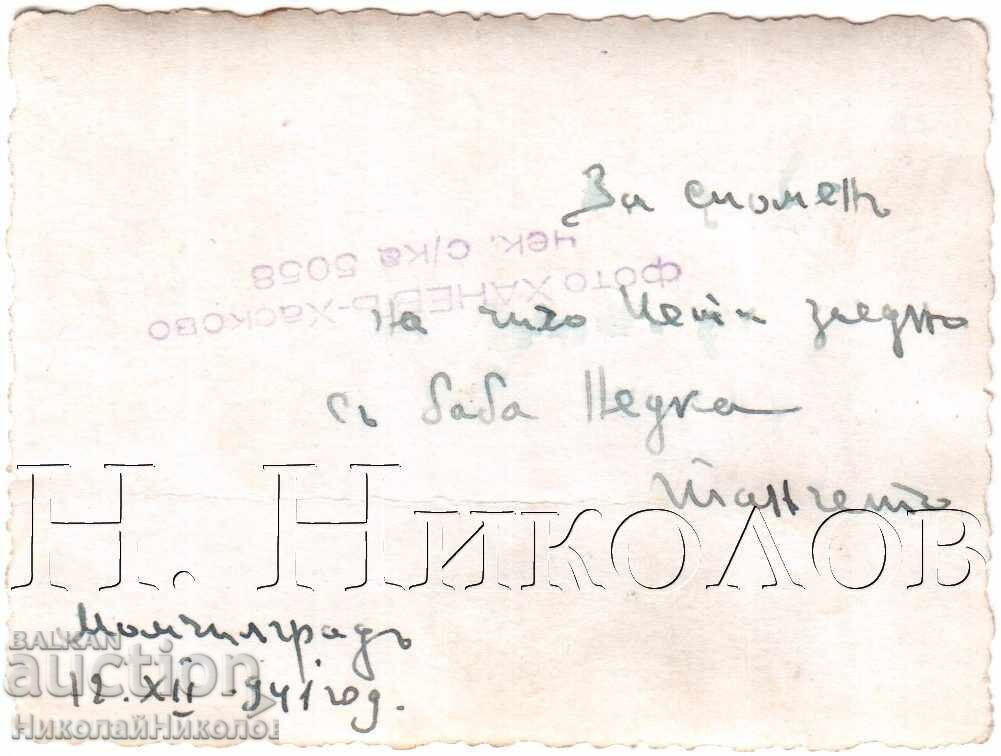 За споменъ
фото ХАНЕВЪ-Хасково
чек. с/ка 5058
на чичо заедно
съ баба Недка
Танчето
Н. Николов
Момчилградъ
12.XII-941 год.
BALKAN
auction
НиколайНиколов